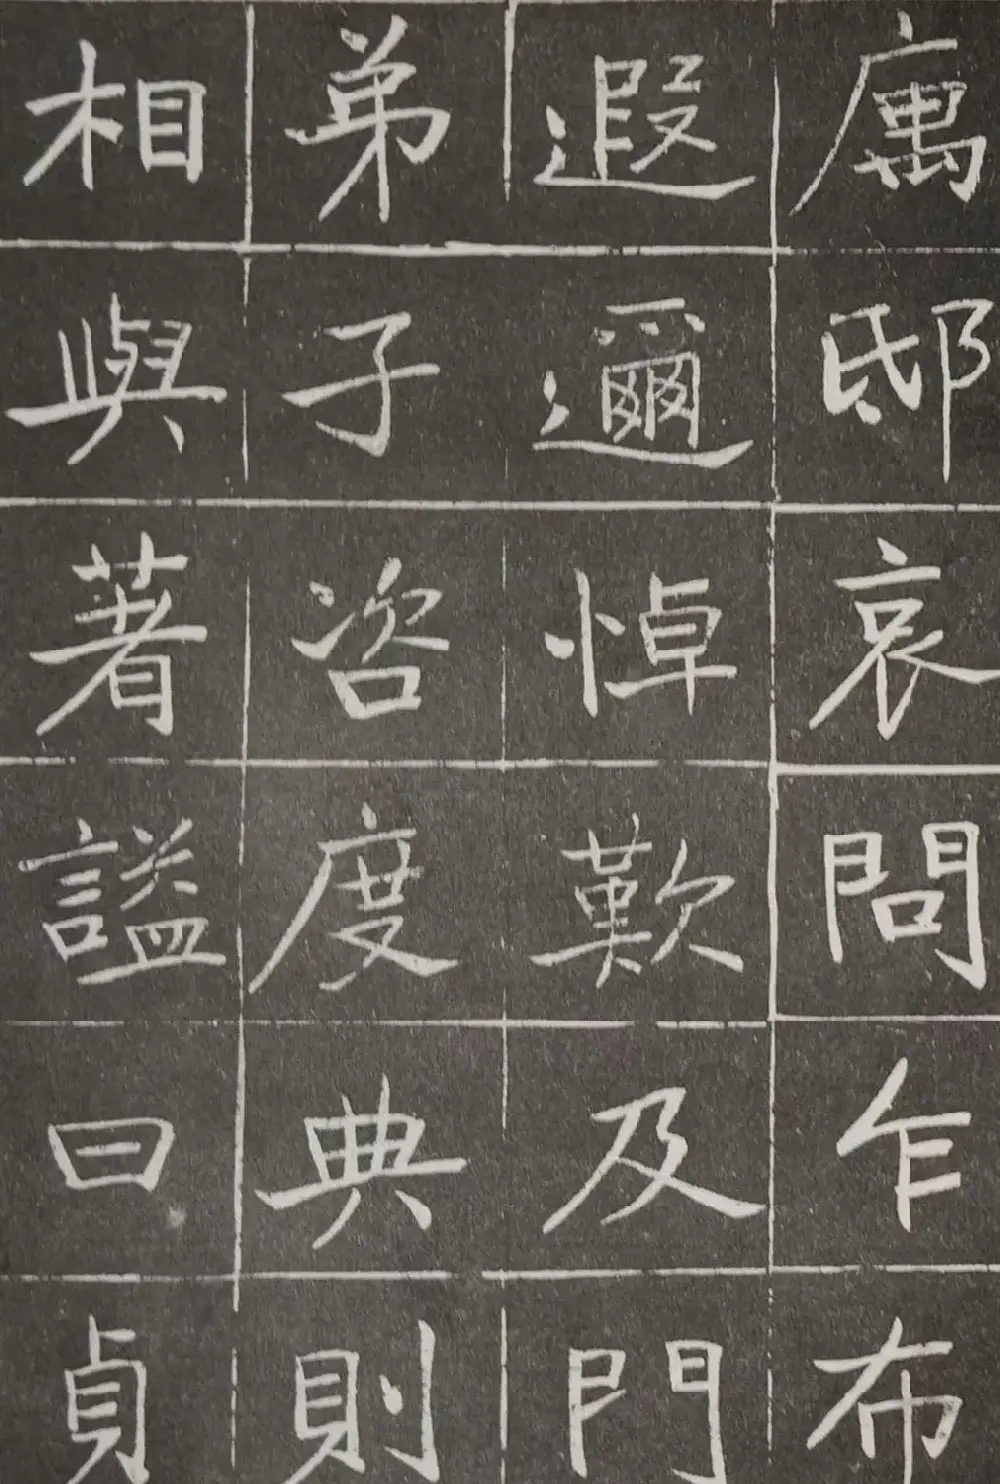 寓邸哀問乍布
遐邇悼歎及門
弟子咨度典則
相與著謚曰貞